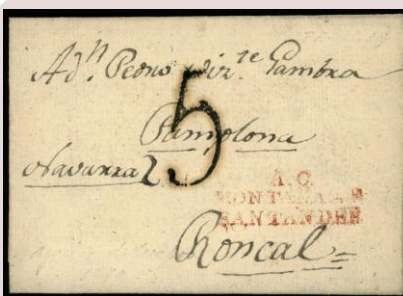 A Dn. Pedro Vizte. Gambra
Pamplona
Navarra
5
A.C.
MONTAÑAS D
SANTANDER
Roncal=